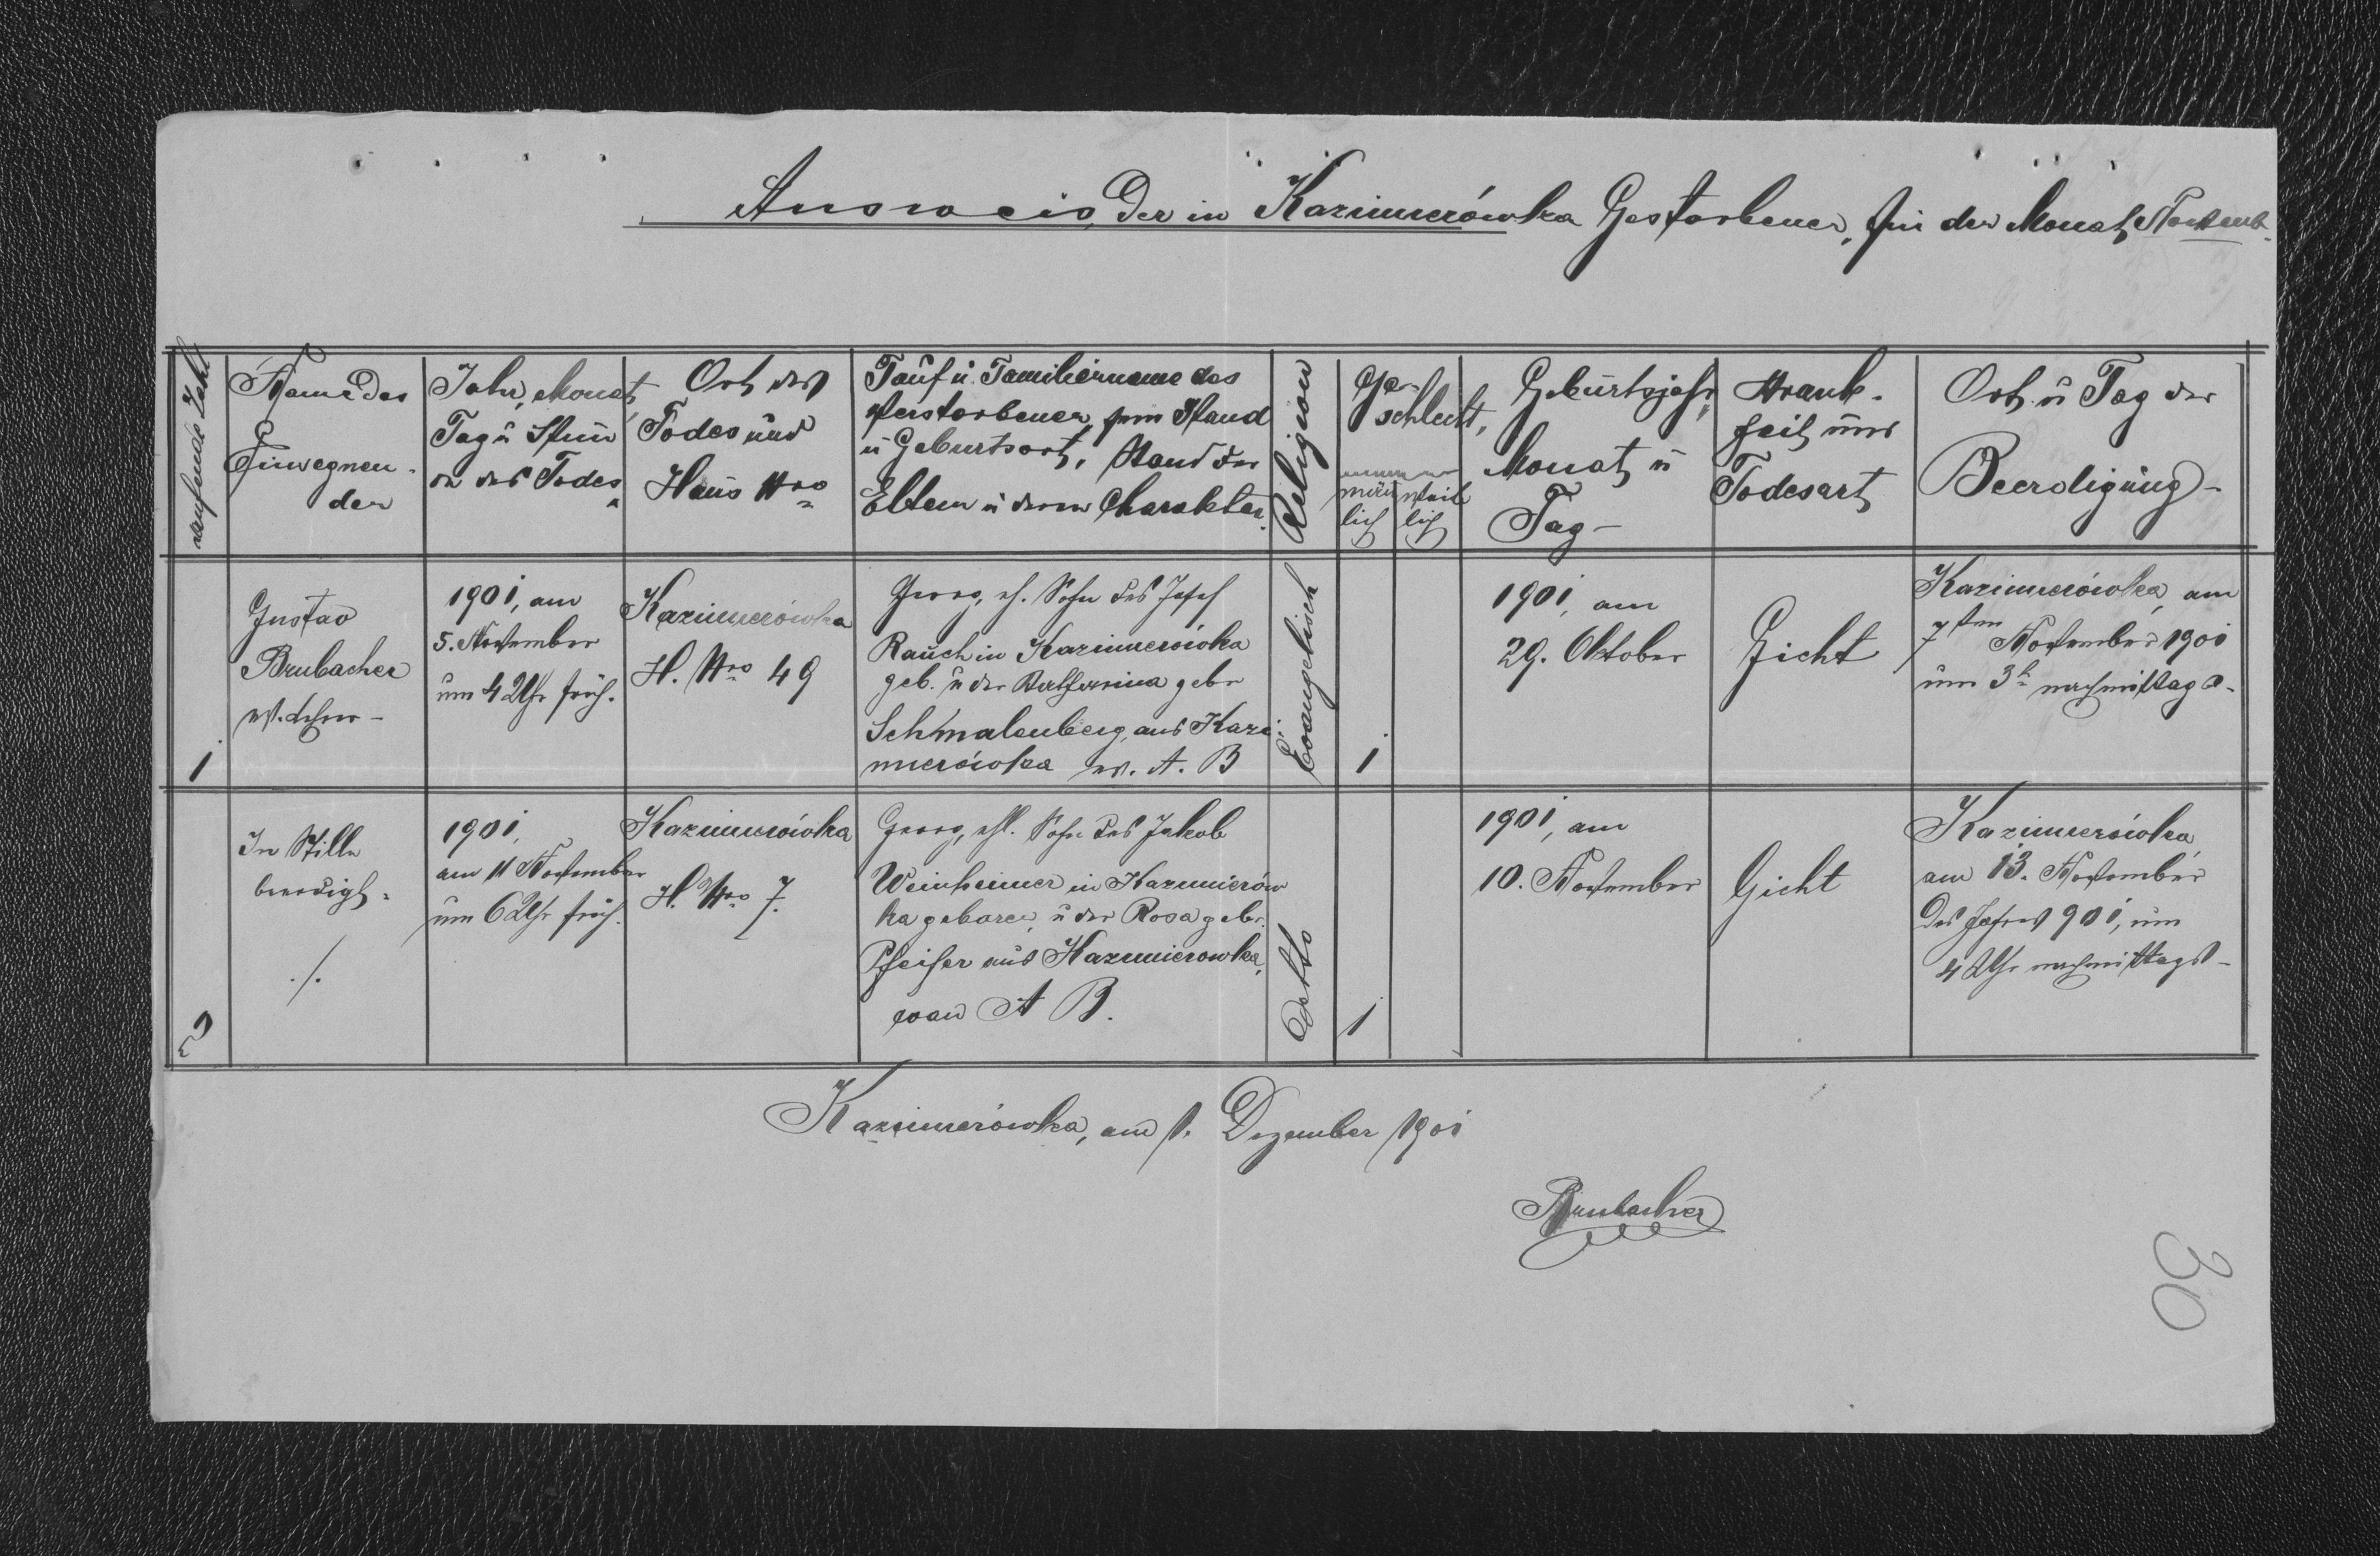 Ausweis, der in Kazimierówka Gestorbener, für den Monat Novemb.
Laufende Zahl
Name des
Einsegnen-
den
Jahr, Monat,
Tag u Stun
de des Todes
Ort des
Todes und
Haus Nro
Tauf u. Familienname des
Verstorbenen, sein Stand
u Geburtsort, Stand der
Eltern u deren Charakter.
Religion
Ge-
schlecht,
män
lich
weib
lich
Geburtsjahr,
Monat u
Tag-
Krank-
heit und
Todesart
Ort u Tag der
Beerdigung-
1
Gustav
Brubacher
ev. Lehrer-
1901, am
5. November
um 4 Uhr früh.
Kazimierówka
H. Nro 49
Georg, eh. Sohn des Josef
Rauch in Kazimierówka
geb. u der Katharina gebr
Schmalenberg, aus Kazi
mierówka ev. A. B
Evangelisch
1
1901, am
29. Oktober
Gicht
Kazimierówka, am
7ten November 1901
um 3h nachmittags-
2
In Stille
beerdigt-
./.
1901,
am 11 November
um 6 Uhr früh.
Kazimierówka
H. Nro 7.
Georg, ehl. Sohn des Jakob
Weinheimer in Kazimierów
ka geboren, u der Rosa gebr.
Pfeifer aus Kazimierowka,
evan A B.
Detto
1
1901, am
10. November
Gicht
Kazimierówka,
am 13. November
des Jahres 901, um
4 Uhr nachmittags-
Kazimierówka, am 1. Dezember 1901
Brubacher
30